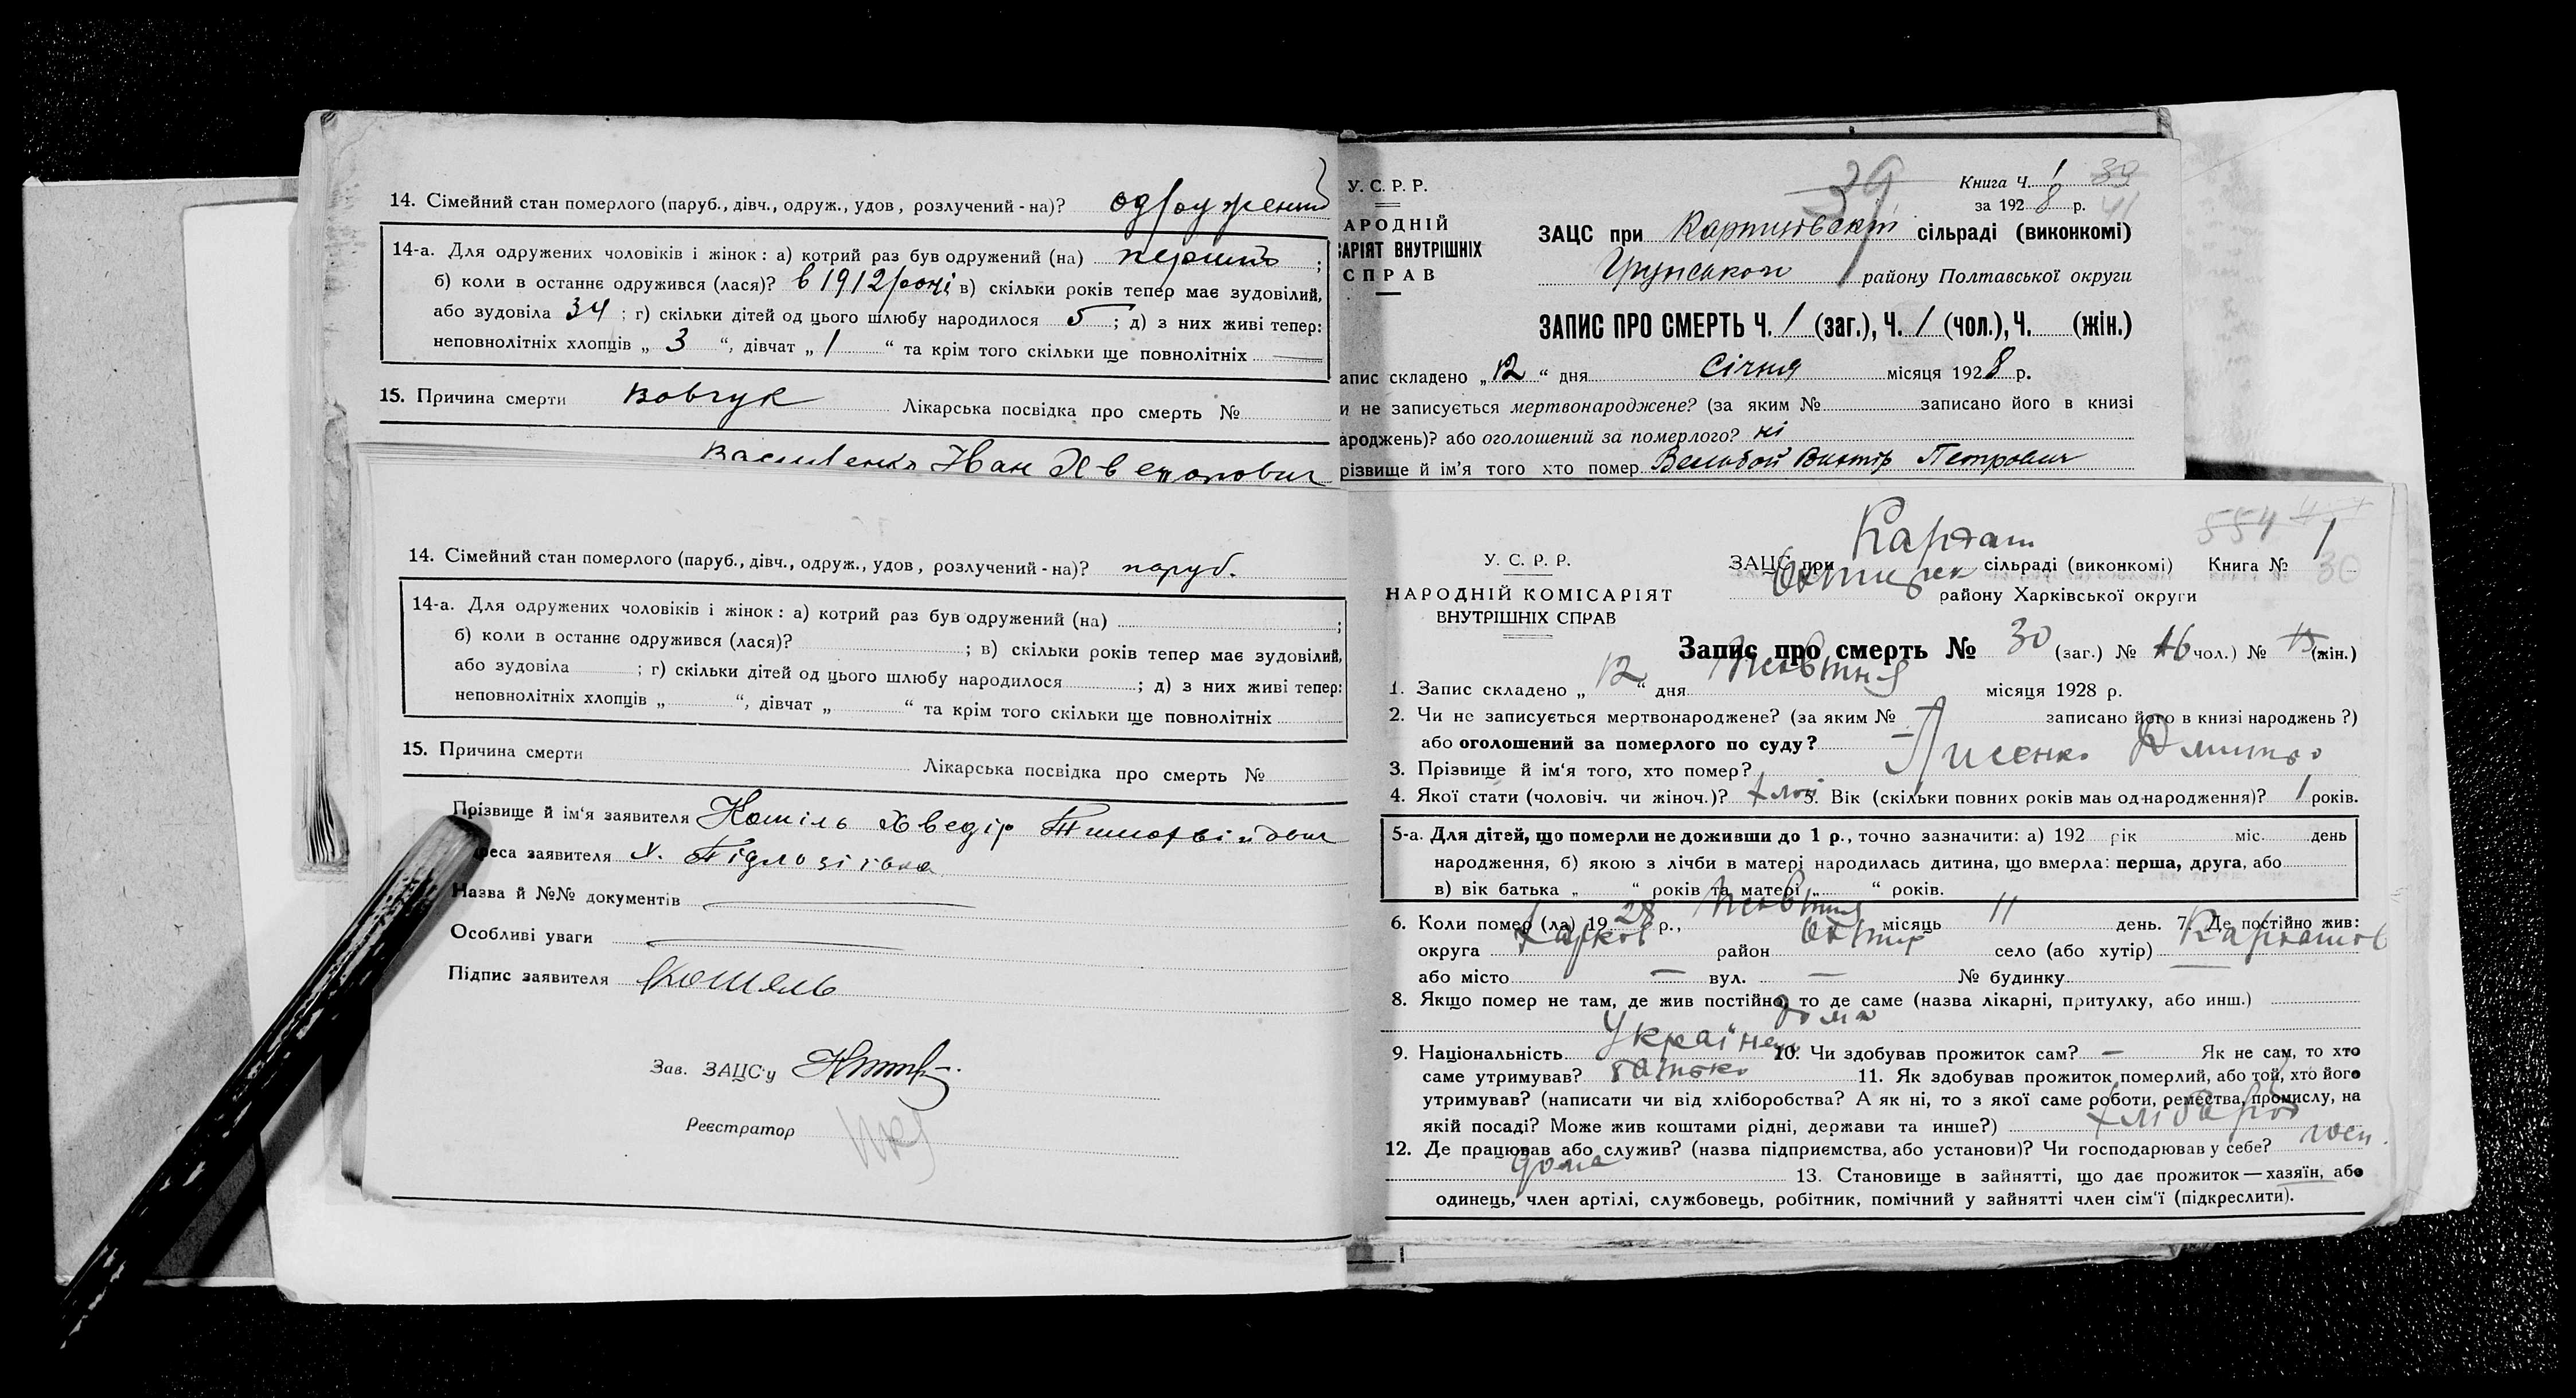 14. Сімейний стан померлого (паруб., дівч., одруж., удов, розлучений-на)? одружений
14-а. Для одружених чоловіків і жінок: а) котрий раз був одружений (на) перший ;
б) коли в останнє одружився (лася)? в 1912 році в) скільки років тепер має зудовілий,
або зудовіла 34 ; г) скільки дітей од цього шлюбу народилося 5 ; д) з них живі тепер:
неповнолітніх хлопців „ 3 “, дівчат „ 1 “ та крім того скільки ще повнолітніх
15. Причина смерти Вовчук Лікарська посвідка про смерть №
Василенко Іван
14. Сімейний стан померлого (паруб., дівч., одруж., удов, розлучений-на)? паруб.
14-а. Для одружених чоловіків і жінок: а) котрий раз був одружений (на) ;
б) коли в останнє одружився (лася)? ; в) скільки років тепер має зудовілий,
або зудовіла ; г) скільки дітей од цього шлюбу народилося ; д) з них живі тепер:
неповнолітніх хлопців „ “, дівчат „ “ та крім того скільки ще повнолітніх
15. Причина смерти Лікарська посвідка про смерть №
Прізвище й ім‘я заявителя Хведір
реса заявителя х.
Назва й №№ документів
Особливі уваги
Підпис заявителя
Зав. ЗАЦС‘у
Реєстратор
У. С. Р. Р.
АРОДНІЙ
САРІЯТ ВНУТРІШНІХ
СПРАВ
39
Книга Ч. 1 39
за 192 8 р. 41
ЗАЦС при сільраді (виконкомі)
Грунського району Полтавської округи
ЗАПИС ПРО СМЕРТЬ Ч. 1 (заг.), Ч. 1 (чол.), Ч. (жін.)
апис складено „ 12 “ дня Січня місяця 192 8 р.
и не записується мертвонароджене? (за яким № записано його в книзі
ароджень)? або оголошений за померлого? ні
різвище й ім‘я того хто помер Віктір Петрович
У. С. Р. Р.
НАРОДНІЙ КОМІСАРІЯТ
ВНУТРІШНІХ СПРАВ
554
1
30
ЗАЦС при Карпат сільраді (виконкомі) Книга №
Охтирск району Харківської округи
Запис про смерть № 30 (заг.) № 16 чол.) № 15 (жін.)
1. Запис складено „ 12 “ дня Жовтня місяця 1928 р.
2. Чи не записується мертвонароджене? (за яким № записано його в книзі народжень?)
або оголошений за померлого по суду?
3. Прізвище й ім‘я того, хто помер? Лисенко Дмитро
4. Якої стати (чоловіч. чи жіноч.)? 5. Вік (скільки повних років мав од народження)? 1 років.
5-а. Для дітей, що померли не доживши до 1 р., точно зазначити: а) 192 рік міс. день
народження, б) якою з лічби в матері народилась дитина, що вмерла: перша, друга, або
в) вік батька „ “ років та матері „ “ років.
6. Коли помер (ла) 19 28 р., Жовтня місяць 11 день. 7. Де постійно жив:
округа Харков район Охтир село (або хутір)
або місто — вул. — № будинку —
8. Якщо помер не там, де жив постійно, то де саме (назва лікарні, притулку, або инш.)
дома
9. Національність Українец 10. Чи здобував прожиток сам? — Як не сам, то хто
саме утримував? батько 11. Як здобував прожиток померлий, або той, хто його
утримував? (написати чи від хліборобства? А як ні, то з якої саме роботи, ремества, промислу, на
якій посаді? Може жив коштами рідні, держави та инше?)
12. Де працював або служив? (назва підприємства, або установи)? Чи господарював у себе?
дома 13. Становище в зайнятті, що дає прожиток — хазяїн, або
одинець, член артілі, службовець, робітник, помічний у зайнятті член сім‘ї (підкреслити).